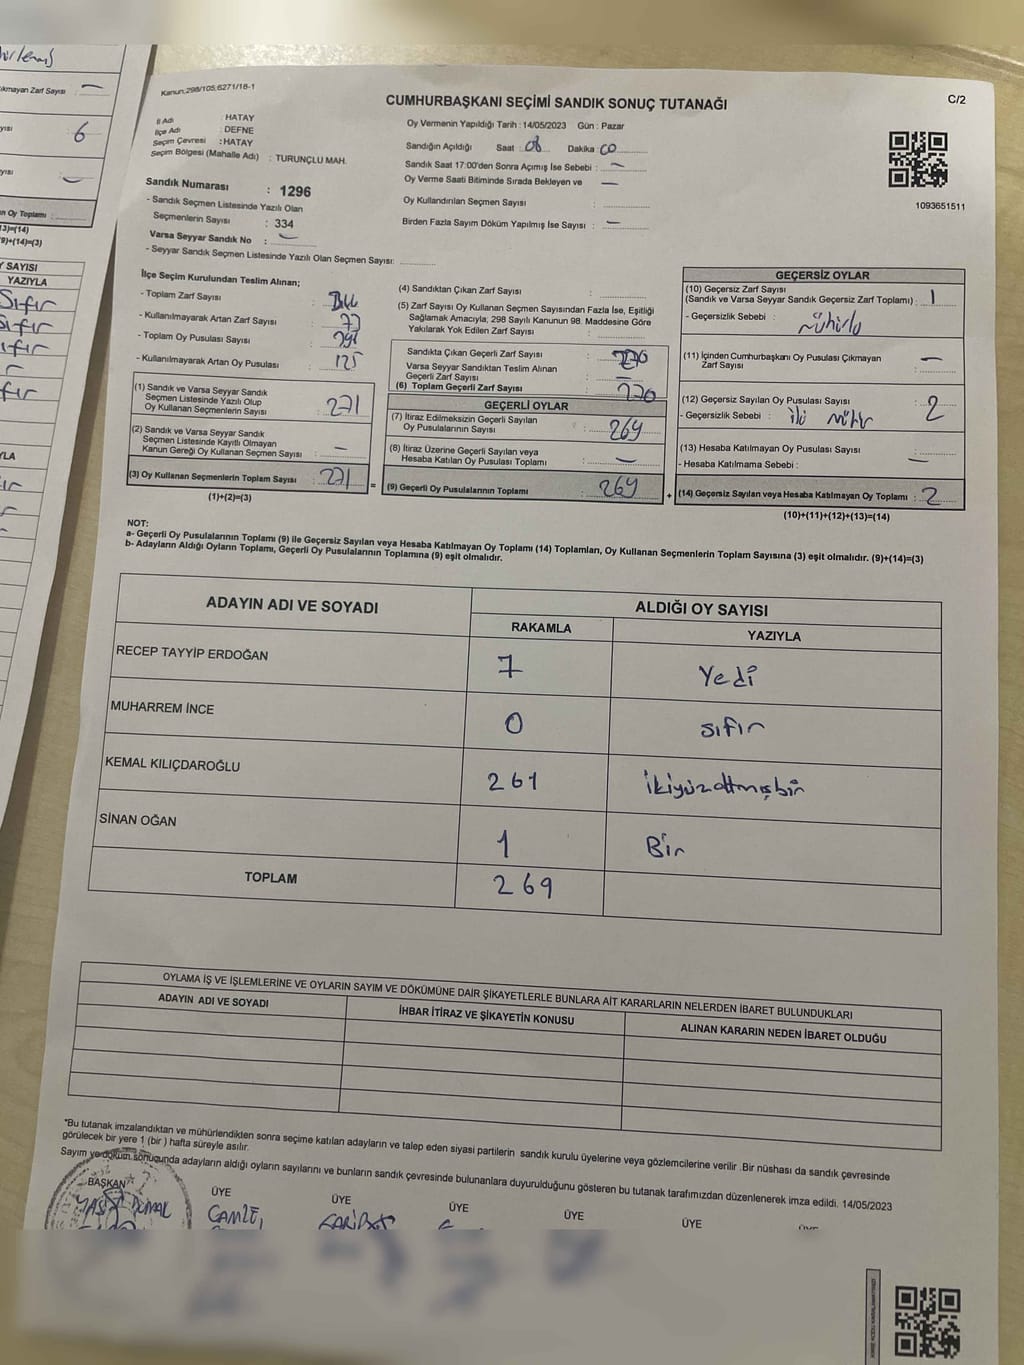 Kanun;298/105;6271/18-1
CUMHURBAŞKANI SEÇİMİ SANDIK SONUÇ TUTANAĞI
C/2
İl Adı : HATAY
İlçe Adı : DEFNE
Seçim Çevresi : HATAY
Seçim Bölgesi (Mahalle Adı) : TURUNÇLU MAH.
Oy Vermenin Yapıldığı Tarih : 14/05/2023 Gün : Pazar
Sandığın Açıldığı Saat : 08 Dakika : 00
Sandık Saat 17:00'den Sonra Açımış İse Sebebi : —
Oy Verme Saati Bitiminde Sırada Bekleyen ve —
Oy Kullandırılan Seçmen Sayısı :
Birden Fazla Sayım Döküm Yapılmış İse Sayısı : —
1093651511
Sandık Numarası : 1296
- Sandık Seçmen Listesinde Yazılı Olan
Seçmenlerin Sayısı : 334
Varsa Seyyar Sandık No : —
- Seyyar Sandık Seçmen Listesinde Yazılı Olan Seçmen Sayısı:
İlçe Seçim Kurulundan Teslim Alınan;
- Toplam Zarf Sayısı :
- Kullanılmayarak Artan Zarf Sayısı : 77
- Toplam Oy Pusulası Sayısı :
- Kullanılmayarak Artan Oy Pusulası : 125
(1) Sandık ve Varsa Seyyar Sandık
Seçmen Listesinde Yazılı Olup
Oy Kullanan Seçmenlerin Sayısı : 271
(2) Sandık ve Varsa Seyyar Sandık
Seçmen Listesinde Kayıtlı Olmayan
Kanun Gereği Oy Kullanan Seçmen Sayısı : —
(3) Oy Kullanan Seçmenlerin Toplam Sayısı : 271 =
(1)+(2)=(3)
(4) Sandıktan Çıkan Zarf Sayısı :
(5) Zarf Sayısı Oy Kullanan Seçmen Sayısından Fazla İse, Eşitliği
Sağlamak Amacıyla; 298 Sayılı Kanunun 98. Maddesine Göre
Yakılarak Yok Edilen Zarf Sayısı :
Sandıkta Çıkan Geçerli Zarf Sayısı : 270
Varsa Seyyar Sandıktan Teslim Alınan
Geçerli Zarf Sayısı : —
(6) Toplam Geçerli Zarf Sayısı : 270
GEÇERLİ OYLAR
(7) İtiraz Edilmeksizin Geçerli Sayılan
Oy Pusulalarının Sayısı : 269
(8) İtiraz Üzerine Geçerli Sayılan veya
Hesaba Katılan Oy Pusulası Toplamı : —
(9) Geçerli Oy Pusulalarının Toplamı : 269 +
GEÇERSİZ OYLAR
(10) Geçersiz Zarf Sayısı
(Sandık ve Varsa Seyyar Sandık Geçersiz Zarf Toplamı) : 1
- Geçersizlik Sebebi : Mühürlü
(11) İçinden Cumhurbaşkanı Oy Pusulası Çıkmayan
Zarf Sayısı : —
(12) Geçersiz Sayılan Oy Pusulası Sayısı : 2
- Geçersizlik Sebebi : iki mühür
(13) Hesaba Katılmayan Oy Pusulası Sayısı : —
- Hesaba Katılmama Sebebi :
(14) Geçersiz Sayılan veya Hesaba Katılmayan Oy Toplamı : 2
(10)+(11)+(12)+(13)=(14)
NOT:
a- Geçerli Oy Pusulalarının Toplamı (9) ile Geçersiz Sayılan veya Hesaba Katılmayan Oy Toplamı (14) Toplamları, Oy Kullanan Seçmenlerin Toplam Sayısına (3) eşit olmalıdır. (9)+(14)=(3)
b- Adayların Aldığı Oyların Toplamı, Geçerli Oy Pusulalarının Toplamına (9) eşit olmalıdır.
ADAYIN ADI VE SOYADI ALDIĞI OY SAYISI
RAKAMLA YAZIYLA
RECEP TAYYİP ERDOĞAN 7 Yedi
MUHARREM İNCE 0 sıfır
KEMAL KILIÇDAROĞLU 261 ikiyüzaltmışbir
SİNAN OĞAN 1 Bir
TOPLAM 269
OYLAMA İŞ VE İŞLEMLERİNE VE OYLARIN SAYIM VE DÖKÜMÜNE DAİR ŞİKAYETLERLE BUNLARA AİT KARARLARIN NELERDEN İBARET BULUNDUKLARI
ADAYIN ADI VE SOYADI İHBAR İTİRAZ VE ŞİKAYETİN KONUSU ALINAN KARARIN NEDEN İBARET OLDUĞU
*Bu tutanak imzalandıktan ve mühürlendikten sonra seçime katılan adayların ve talep eden siyasi partilerin sandık kurulu üyelerine veya gözlemcilerine verilir .Bir nüshası da sandık çevresinde
görülecek bir yere 1 (bir ) hafta süreyle asılır.
Sayım ve döküm sonucunda adayların aldığı oyların sayılarını ve bunların sandık çevresinde bulunanlara duyurulduğunu gösteren bu tutanak tarafımızdan düzenlenerek imza edildi. 14/05/2023
BAŞKAN ÜYE ÜYE ÜYE ÜYE ÜYE
GAMZE
ıkmayan Zarf Sayısı —
yısı 6
n Oy Toplamı :
3)=(14)
9)+(14)=(3)
SAYISI
YAZIYLA
Sıfır